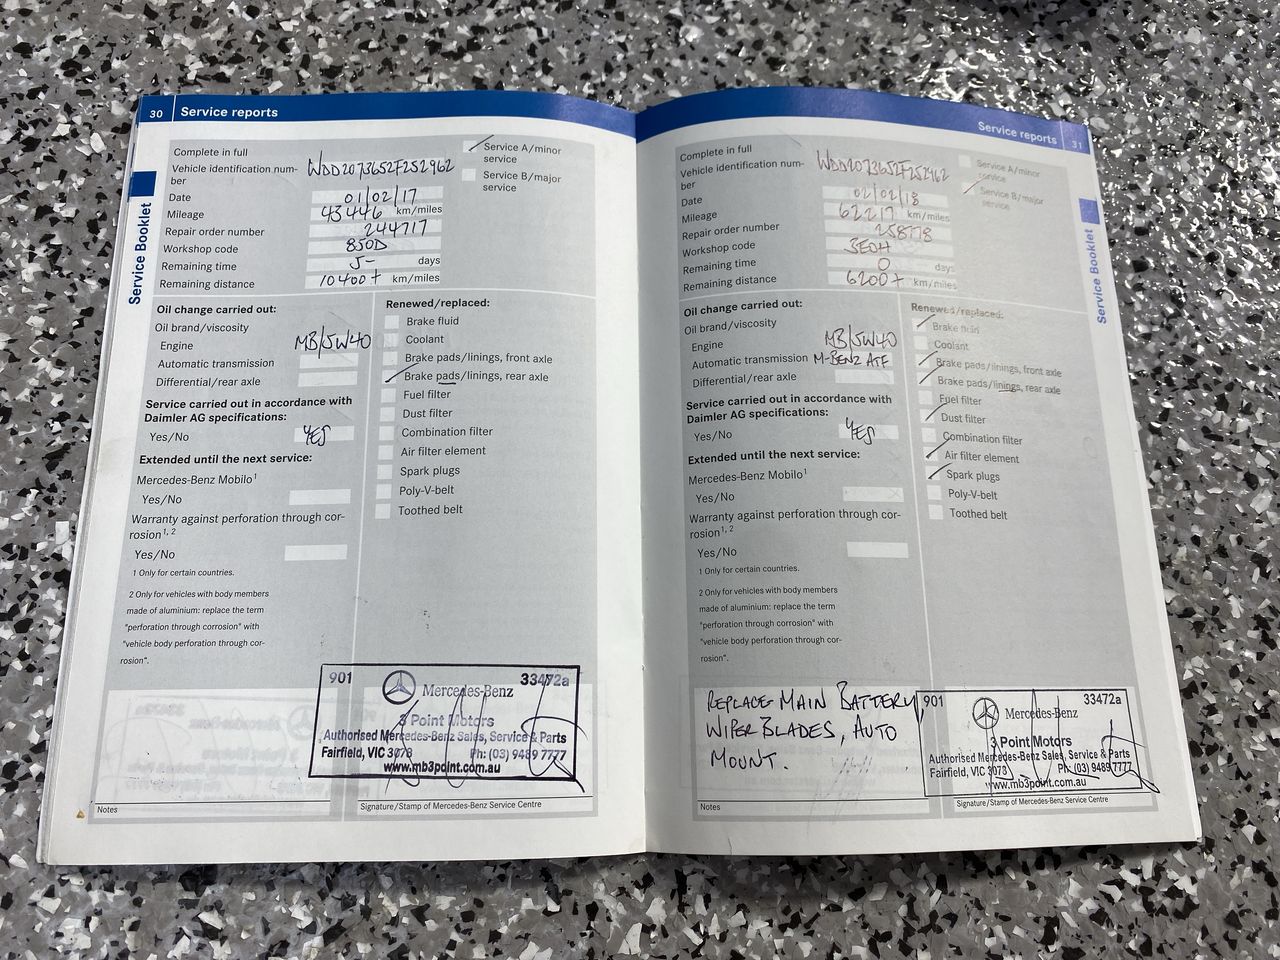 30 Service reports
Complete in full
Vehicle identification num-
ber WDD2073652F252962
Date 01/02/17
Mileage 43446 km/miles
Repair order number 244717
Workshop code 850D
Remaining time 5- days
Remaining distance 10400+ km/miles
Service A/minor
service
Service B/major
service
Oil change carried out:
Oil brand/viscosity
Engine MB/5W40
Automatic transmission
Differential/rear axle
Service carried out in accordance with
Daimler AG specifications:
Yes/No YES
Extended until the next service:
Mercedes-Benz Mobilo1
Yes/No
Warranty against perforation through cor-
rosion1, 2
Yes/No
1 Only for certain countries.
2 Only for vehicles with body members
made of aluminium: replace the term
"perforation through corrosion" with
"vehicle body perforation through cor-
rosion".
Renewed/replaced:
Brake fluid
Coolant
Brake pads/linings, front axle
Brake pads/linings, rear axle
Fuel filter
Dust filter
Combination filter
Air filter element
Spark plugs
Poly-V-belt
Toothed belt
901 33472a
Mercedes-Benz
3 Point Motors
Authorised Mercedes-Benz Sales, Service & Parts
Fairfield, VIC 3078 Ph: (03) 9489 7777
www.mb3point.com.au
Notes
Signature/Stamp of Mercedes-Benz Service Centre
Service Booklet
Service reports 31
Complete in full
Vehicle identification num-
ber WDD2073652F252962
Date 02/02/18
Mileage 62217 km/miles
Repair order number 258778
Workshop code 3EOH
Remaining time 0 days
Remaining distance 6200+ km/miles
Service A/minor
service
Service B/major
service
Oil change carried out:
Oil brand/viscosity
Engine MB/5W40
Automatic transmission M-BENZ ATF
Differential/rear axle
Service carried out in accordance with
Daimler AG specifications:
Yes/No YES
Extended until the next service:
Mercedes-Benz Mobilo1
Yes/No
Warranty against perforation through cor-
rosion1, 2
Yes/No
1 Only for certain countries.
2 Only for vehicles with body members
made of aluminium: replace the term
"perforation through corrosion" with
"vehicle body perforation through cor-
rosion".
Renewed/replaced:
Brake fluid
Coolant
Brake pads/linings, front axle
Brake pads/linings, rear axle
Fuel filter
Dust filter
Combination filter
Air filter element
Spark plugs
Poly-V-belt
Toothed belt
REPLACE MAIN BATTERY,
WIPER BLADES, AUTO
MOUNT.
901 33472a
Mercedes-Benz
3 Point Motors
Authorised Mercedes-Benz Sales, Service & Parts
Fairfield, VIC 3078 Ph: (03) 9489 7777
www.mb3point.com.au
Notes
Signature/Stamp of Mercedes-Benz Service Centre
Service Booklet